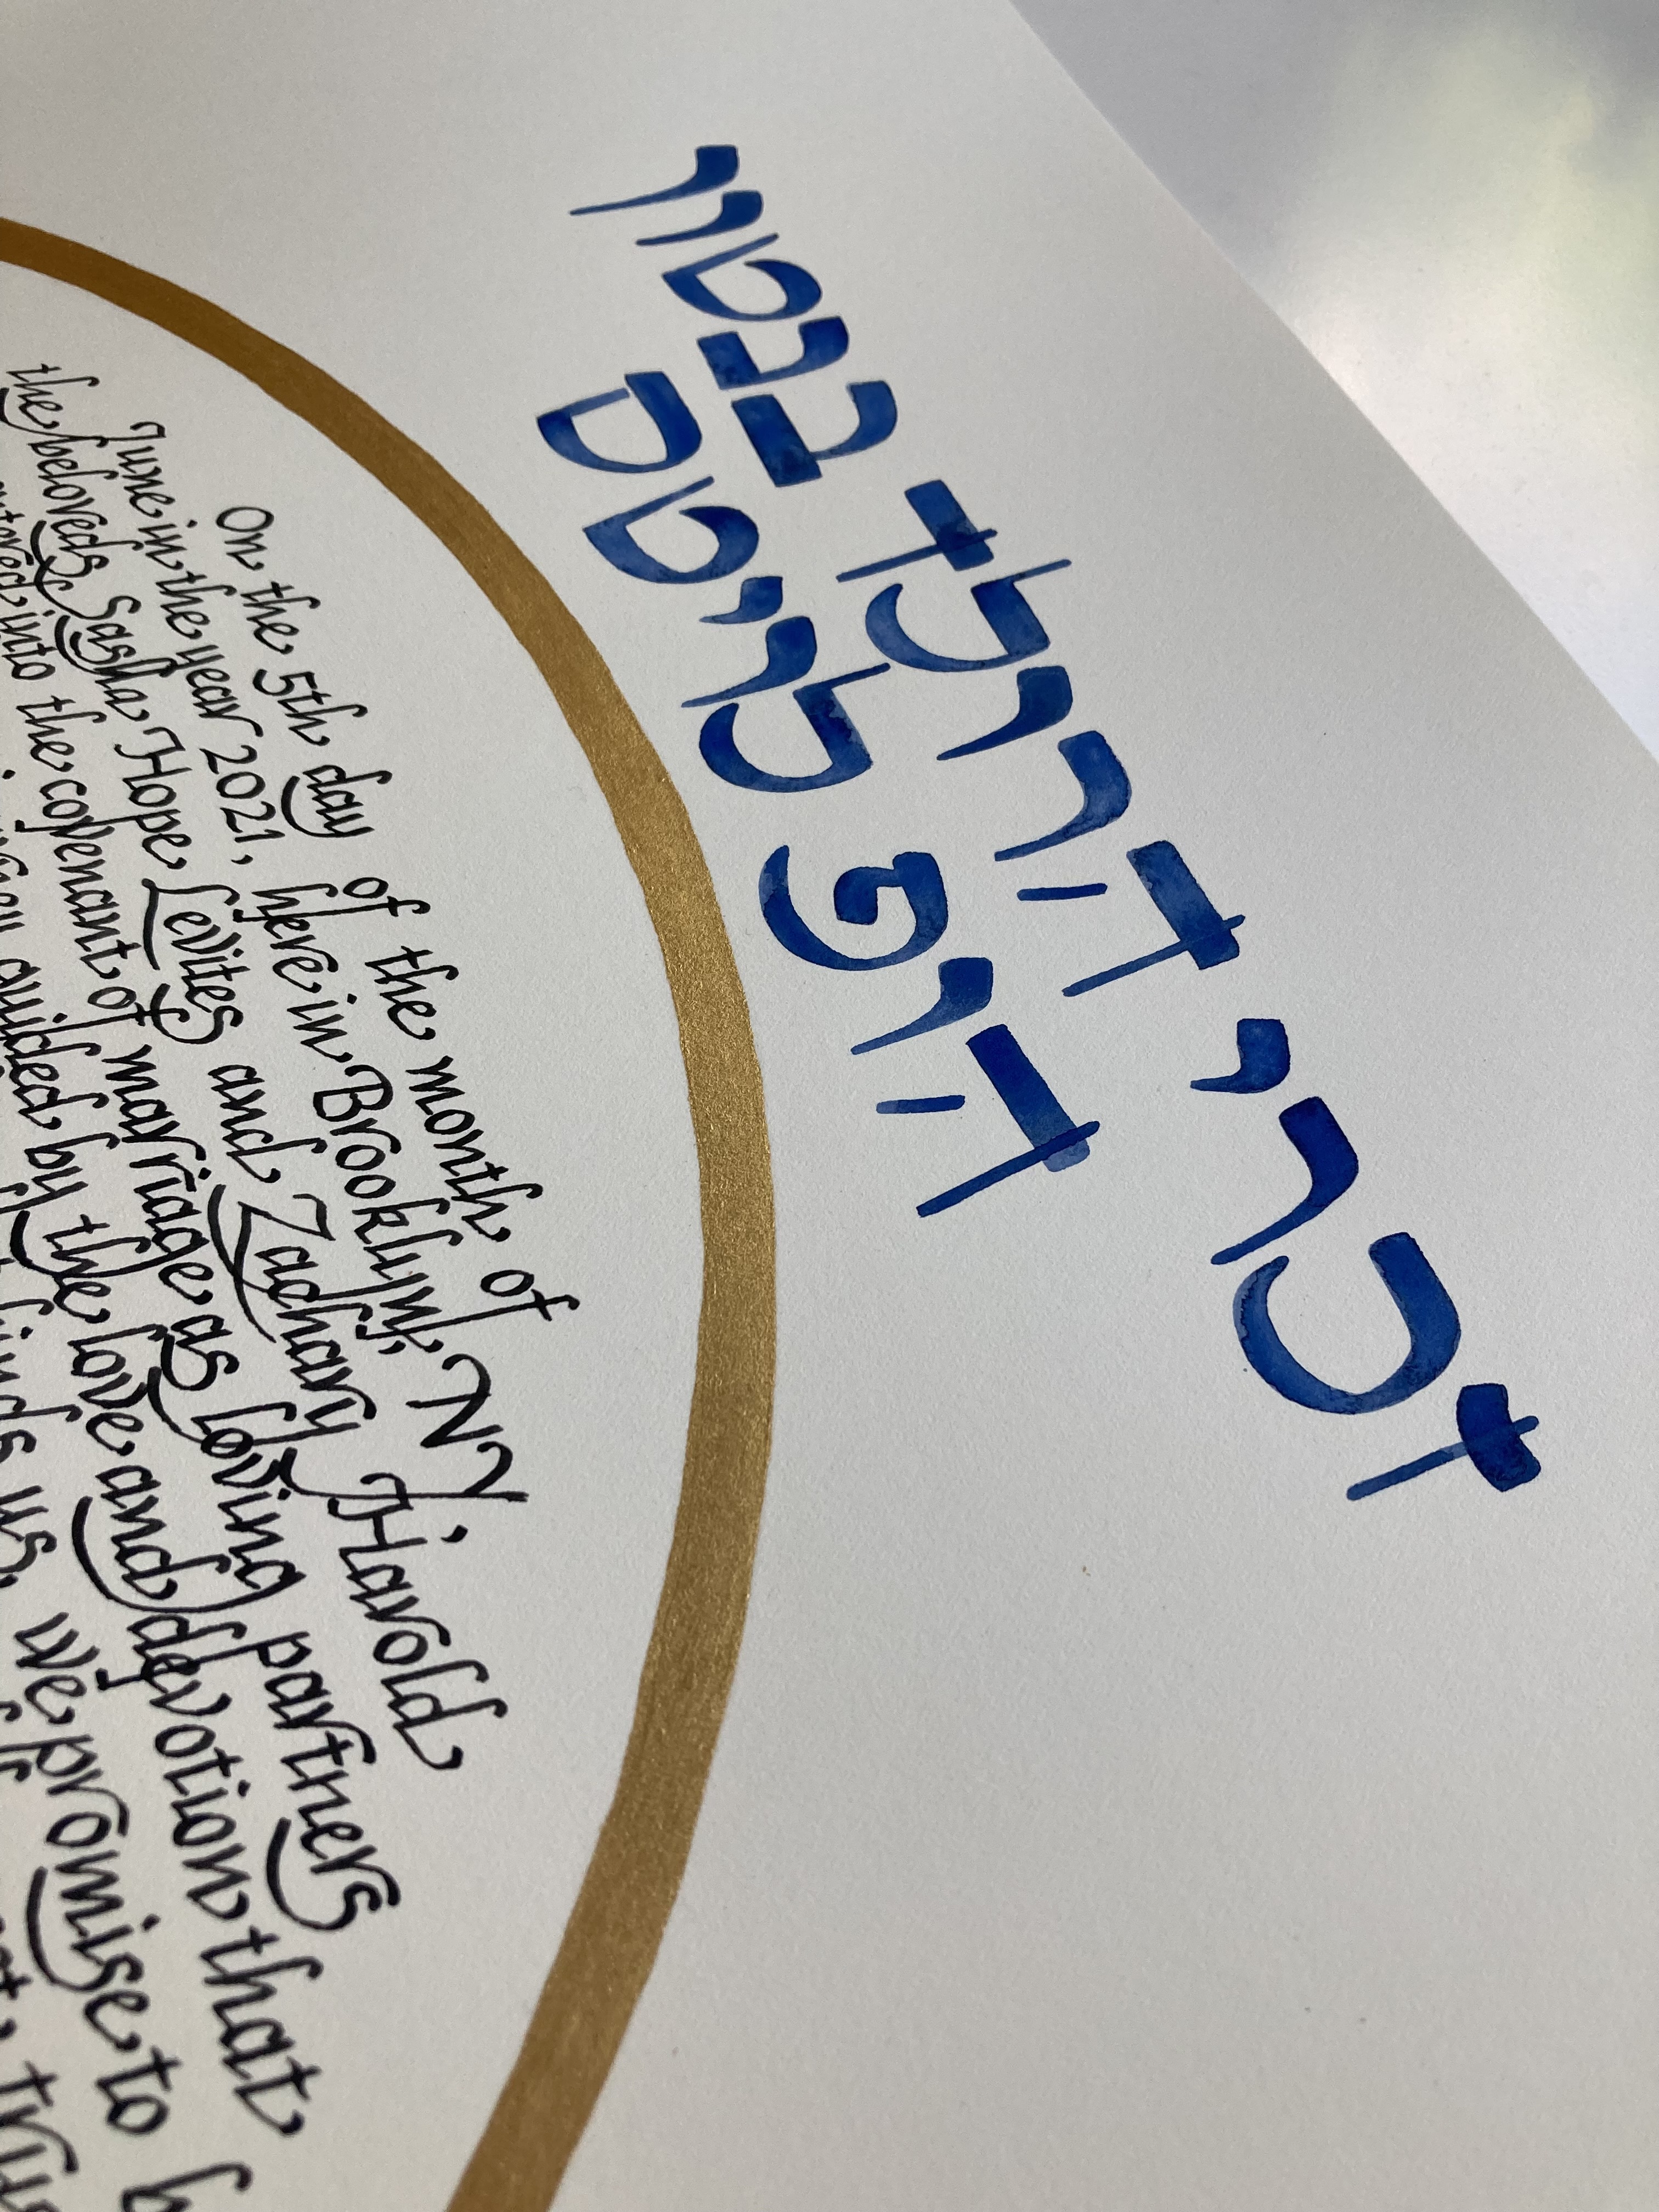 זכרי הרולד בנטון
הופ לויטס
On the 5th day of the month of
June in the year 2021, here in Brooklyn, NY,
the beloveds, Sasha Hope Levites and Zachary Harold
entered into the covenant of marriage as loving partners
guided by the love and devotion that
us, we promise to